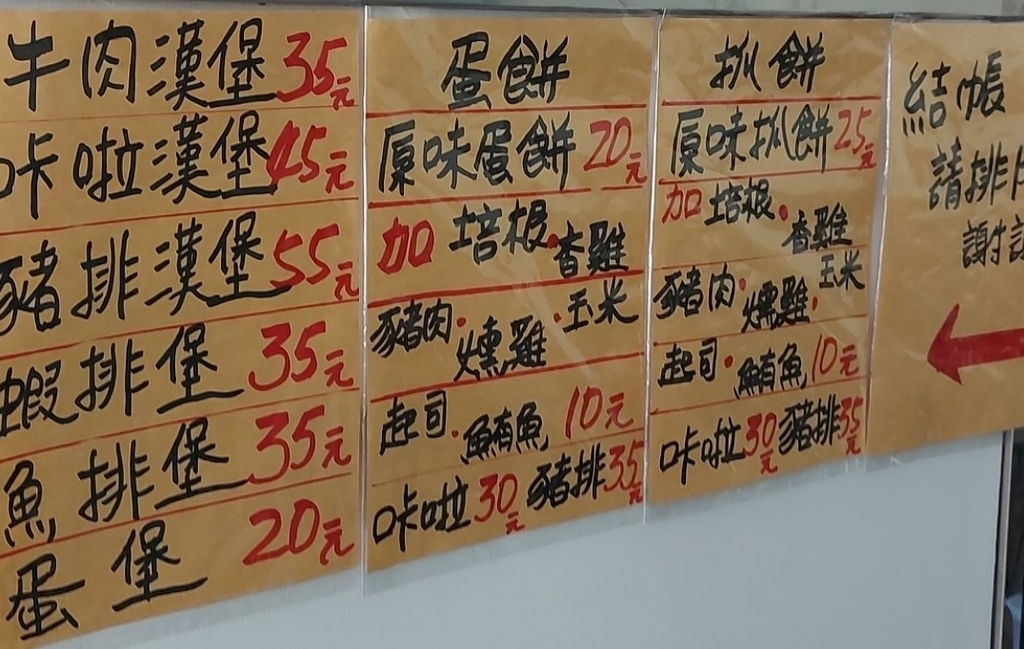 牛肉漢堡35元
咔啦漢堡45元
豬排漢堡55元
蝦排堡35元
魚排堡35元
蛋堡20元
蛋餅
原味蛋餅20元
加培根.香雞
豬肉.燻雞.玉米
起司.鮪魚10元
咔啦30元豬排35元
抓餅
原味抓餅25元
加培根.香雞
豬肉.燻雞.玉米
起司.鮪魚10元
咔啦30元豬排35元
結帳
請排
謝謝